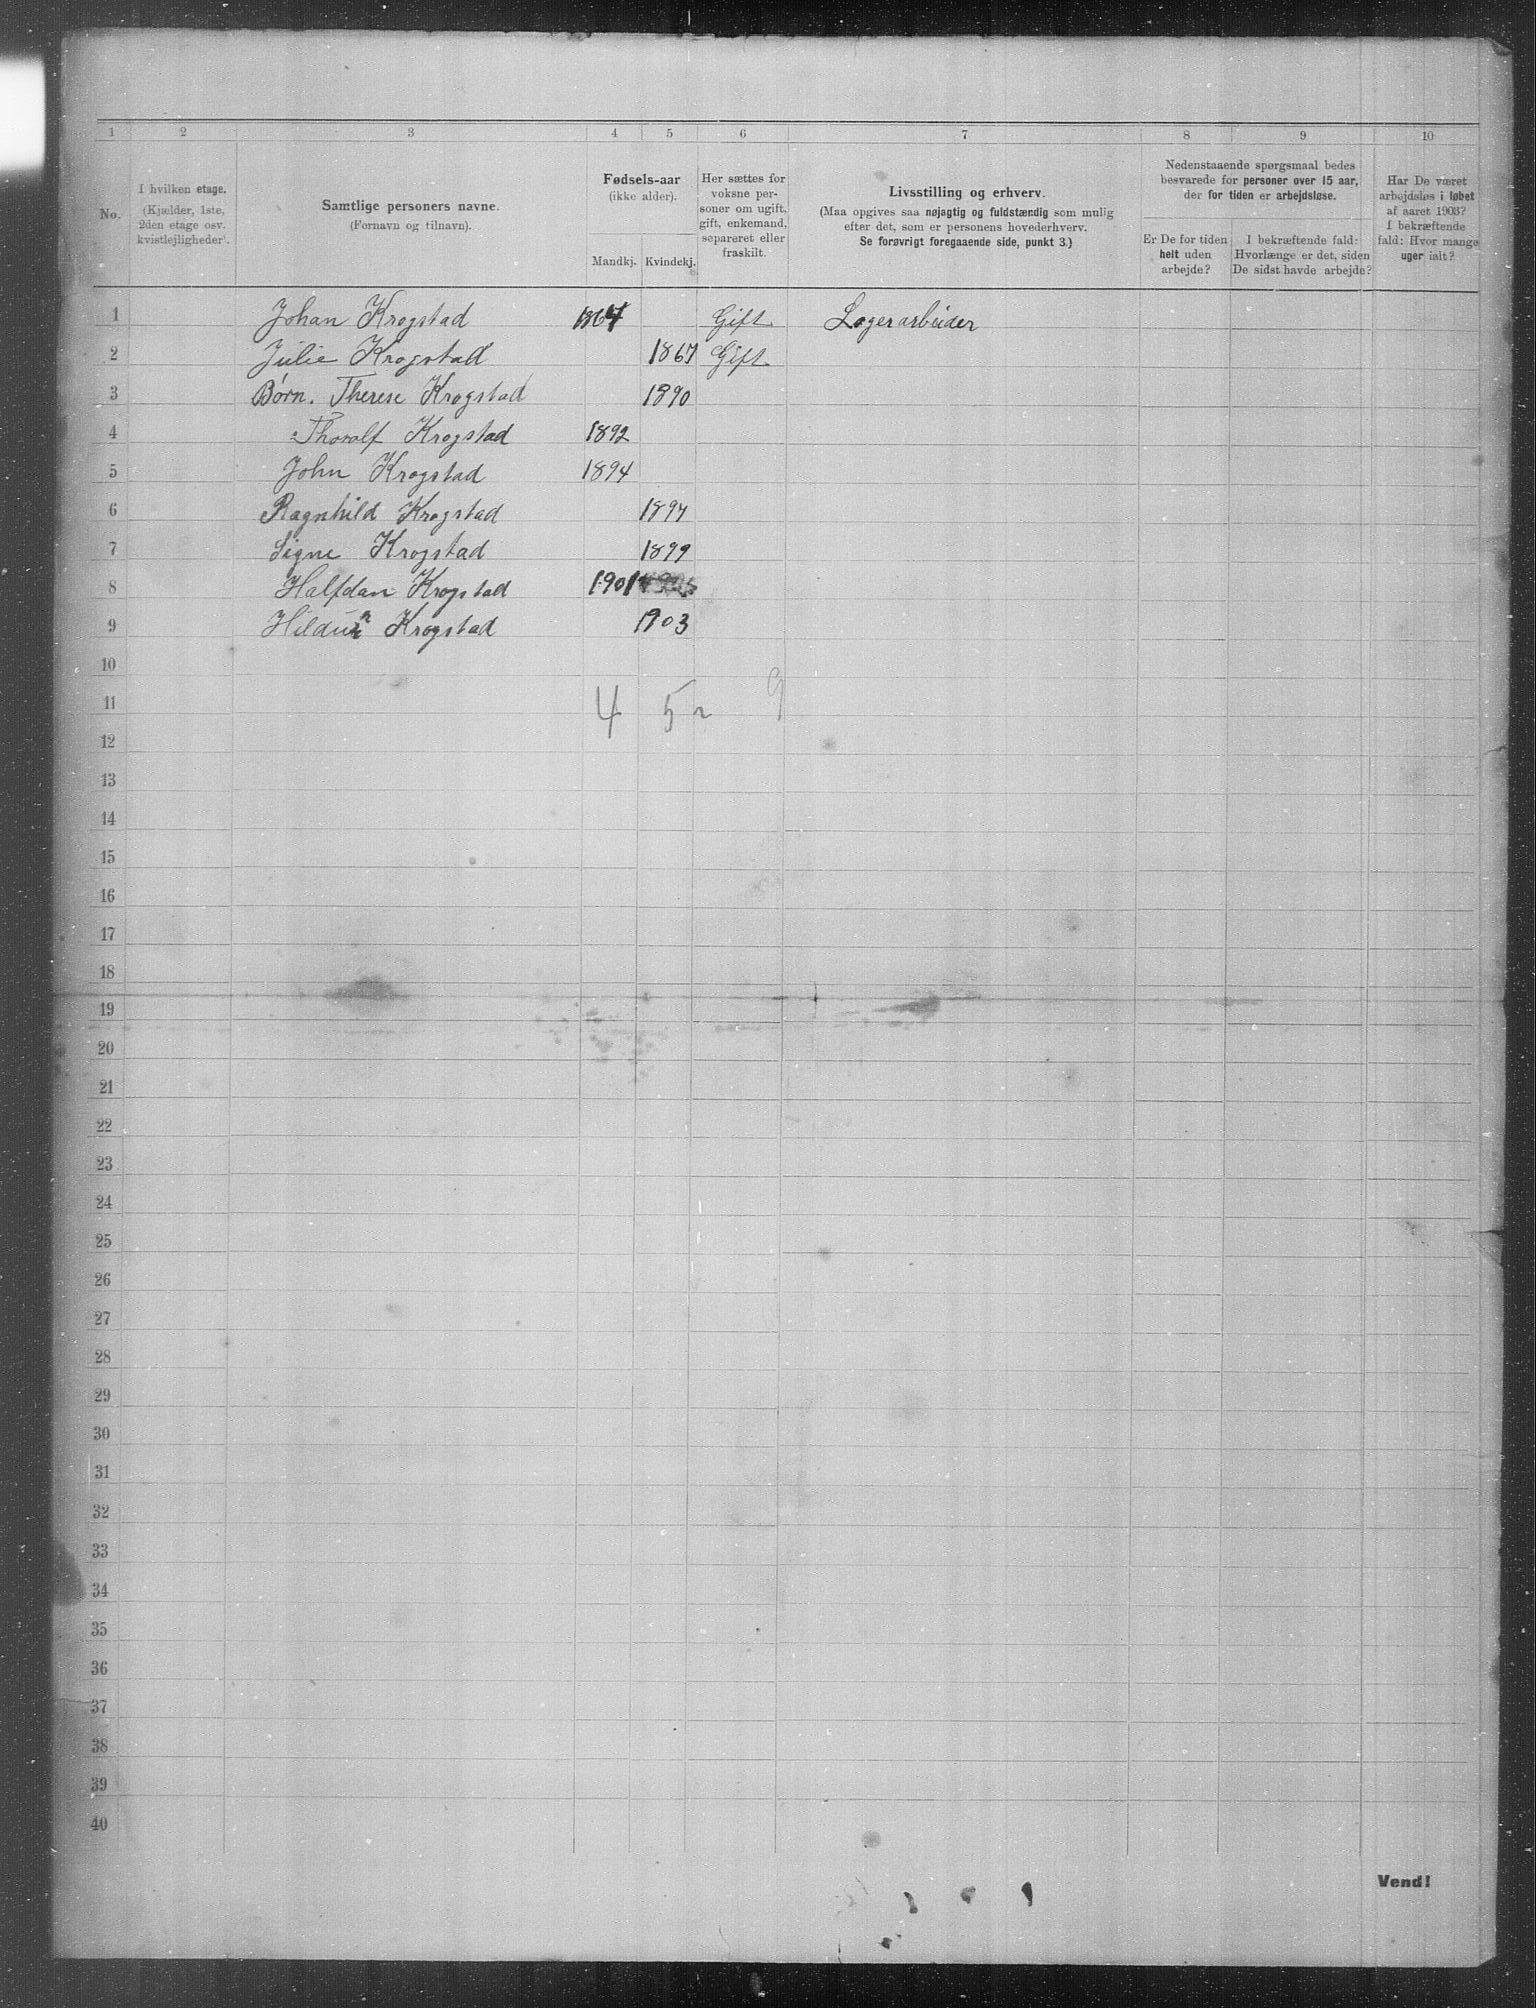 1 2 3 4 5 6 7 8 9 10
No.
I hvilken etage.
(Kjælder, 1ste,
2den etage osv.
kvistleiligheder).
Samtlige personers navne.
(Fornavn og tilnavn).
Fødsels-aar
(ikke alder).
Mandkj. Kvindekj.
Her sættes for
voksne per-
soner om ugift,
gift, enkemand,
separeret eller
fraskilt.
Livsstilling og erhverv.
(Maa opgives saa nøjagtig og fuldstændig som mulig
efter det, som er personens hovederhverv.
Se forøvrigt foregaaende side, punkt 3.)
Nedenstaaende spørgsmaal bedes
besvarede for personer over 15 aar,
der for tiden er arbejdsløse.
Er De for tiden
helt uden
arbejde?
I bekræftende fald:
Hvorlænge er det, siden
De sidst havde arbejde?
Har De været
arbejdsløs i løbet
af aaret 1903?
I bekræftende
fald: Hvor mange
uger ialt?
1 Johan Krogstad 1864 Gift Lagerarbeider
2 Julie Krogstad 1867 Gift
3 Børn. Therese Krogstad 1890
4 Thoralf Krogstad 1892
5 John Krogstad 1894
6 Ragnhild Krogstad 1897
7 Signe Krogstad 1899
8 Halfdan Krogstad 1901
9 Hildur Krogstad 1903
10
11 4 5 9
12
13
14
15
16
17
18
19
20
21
22
23
24
25
26
27
28
29
30
31
32
33
34
35
36
37
38
39
40
Vend!